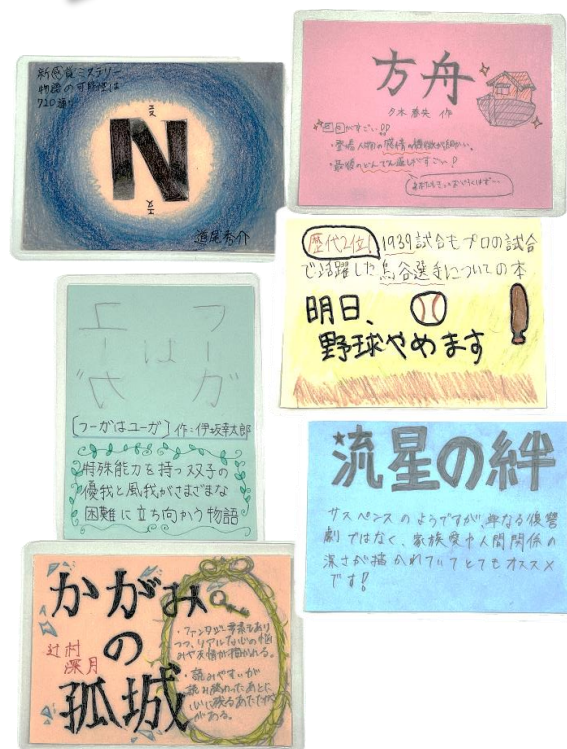 新感覚ミステリー
物語の可能性は
720通り
N
エヌ
エヌ
道尾秀介
方舟
夕木春央 作
がすごい!!
・登場人物の感情の描写が細かい。
・最後のどんでん返しがすごい!
歴代2位!1939試合もプロの試合
で活躍した鳥谷選手についての本
明日、
野球やめます
フーガ
は
ユーガ
[フーガはユーガ] 作:伊坂幸太郎
特殊能力を持つ双子の
優我と風我がさまざまな
困難に立ち向かう物語
流星の絆
サスペンスのようですが、単なる復讐
劇ではなく、家族愛や人間関係の
深さが描かれていてとてもオススメ
です!!
かがみ
の
孤城
辻村
深月
・ファンタジー要素もあり
つつ、リアルな心の悩
みや友情が描かれる。
・読みやすいが
読み終わったあとに
心に残るあたたかさ
がある。